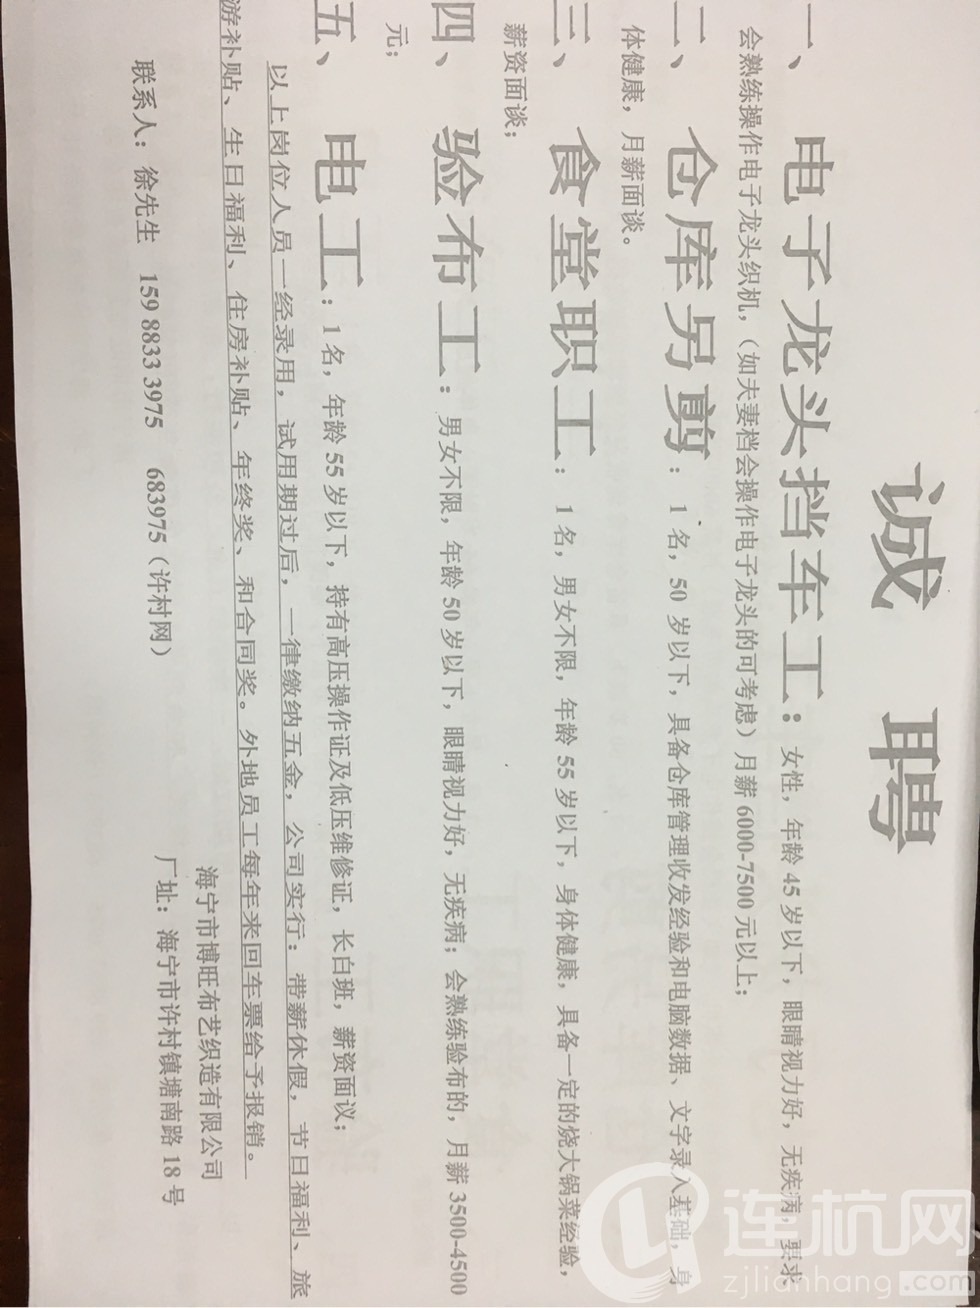 诚 聘
一、电子龙头挡车工：女性，年龄 45 岁以下，眼睛视力好，无疾病，要求
会熟练操作电子龙头织机，（如夫妻档会操作电子龙头的可考虑）月薪 6000-7500 元以上；
二、仓库另剪：1 名，50 岁以下，具备仓库管理收发经验和电脑数据、文字录入基础，身
体健康，月薪面谈。
三、食堂职工：1 名，男女不限，年龄 55 岁以下，身体健康，具备一定的烧大锅菜经验，
薪资面谈；
四、验布工：男女不限，年龄 50 岁以下，眼睛视力好，无疾病；会熟练验布的，月薪 3500-4500
元；
五、电工：1 名，年龄 55 岁以下，持有高压操作证及低压维修证，长白班，薪资面议；
以上岗位人员一经录用，试用期过后，一律缴纳五金，公司实行：带薪休假，节日福利、旅
游补贴、生日福利、住房补贴、年终奖、和合同奖。外地员工每年来回车票给予报销。
海宁市博旺布艺织造有限公司
联系人：徐先生 159 8833 3975 683975（许村网） 厂址：海宁市许村镇塘南路 18 号
连杭网
zjlianhang.com